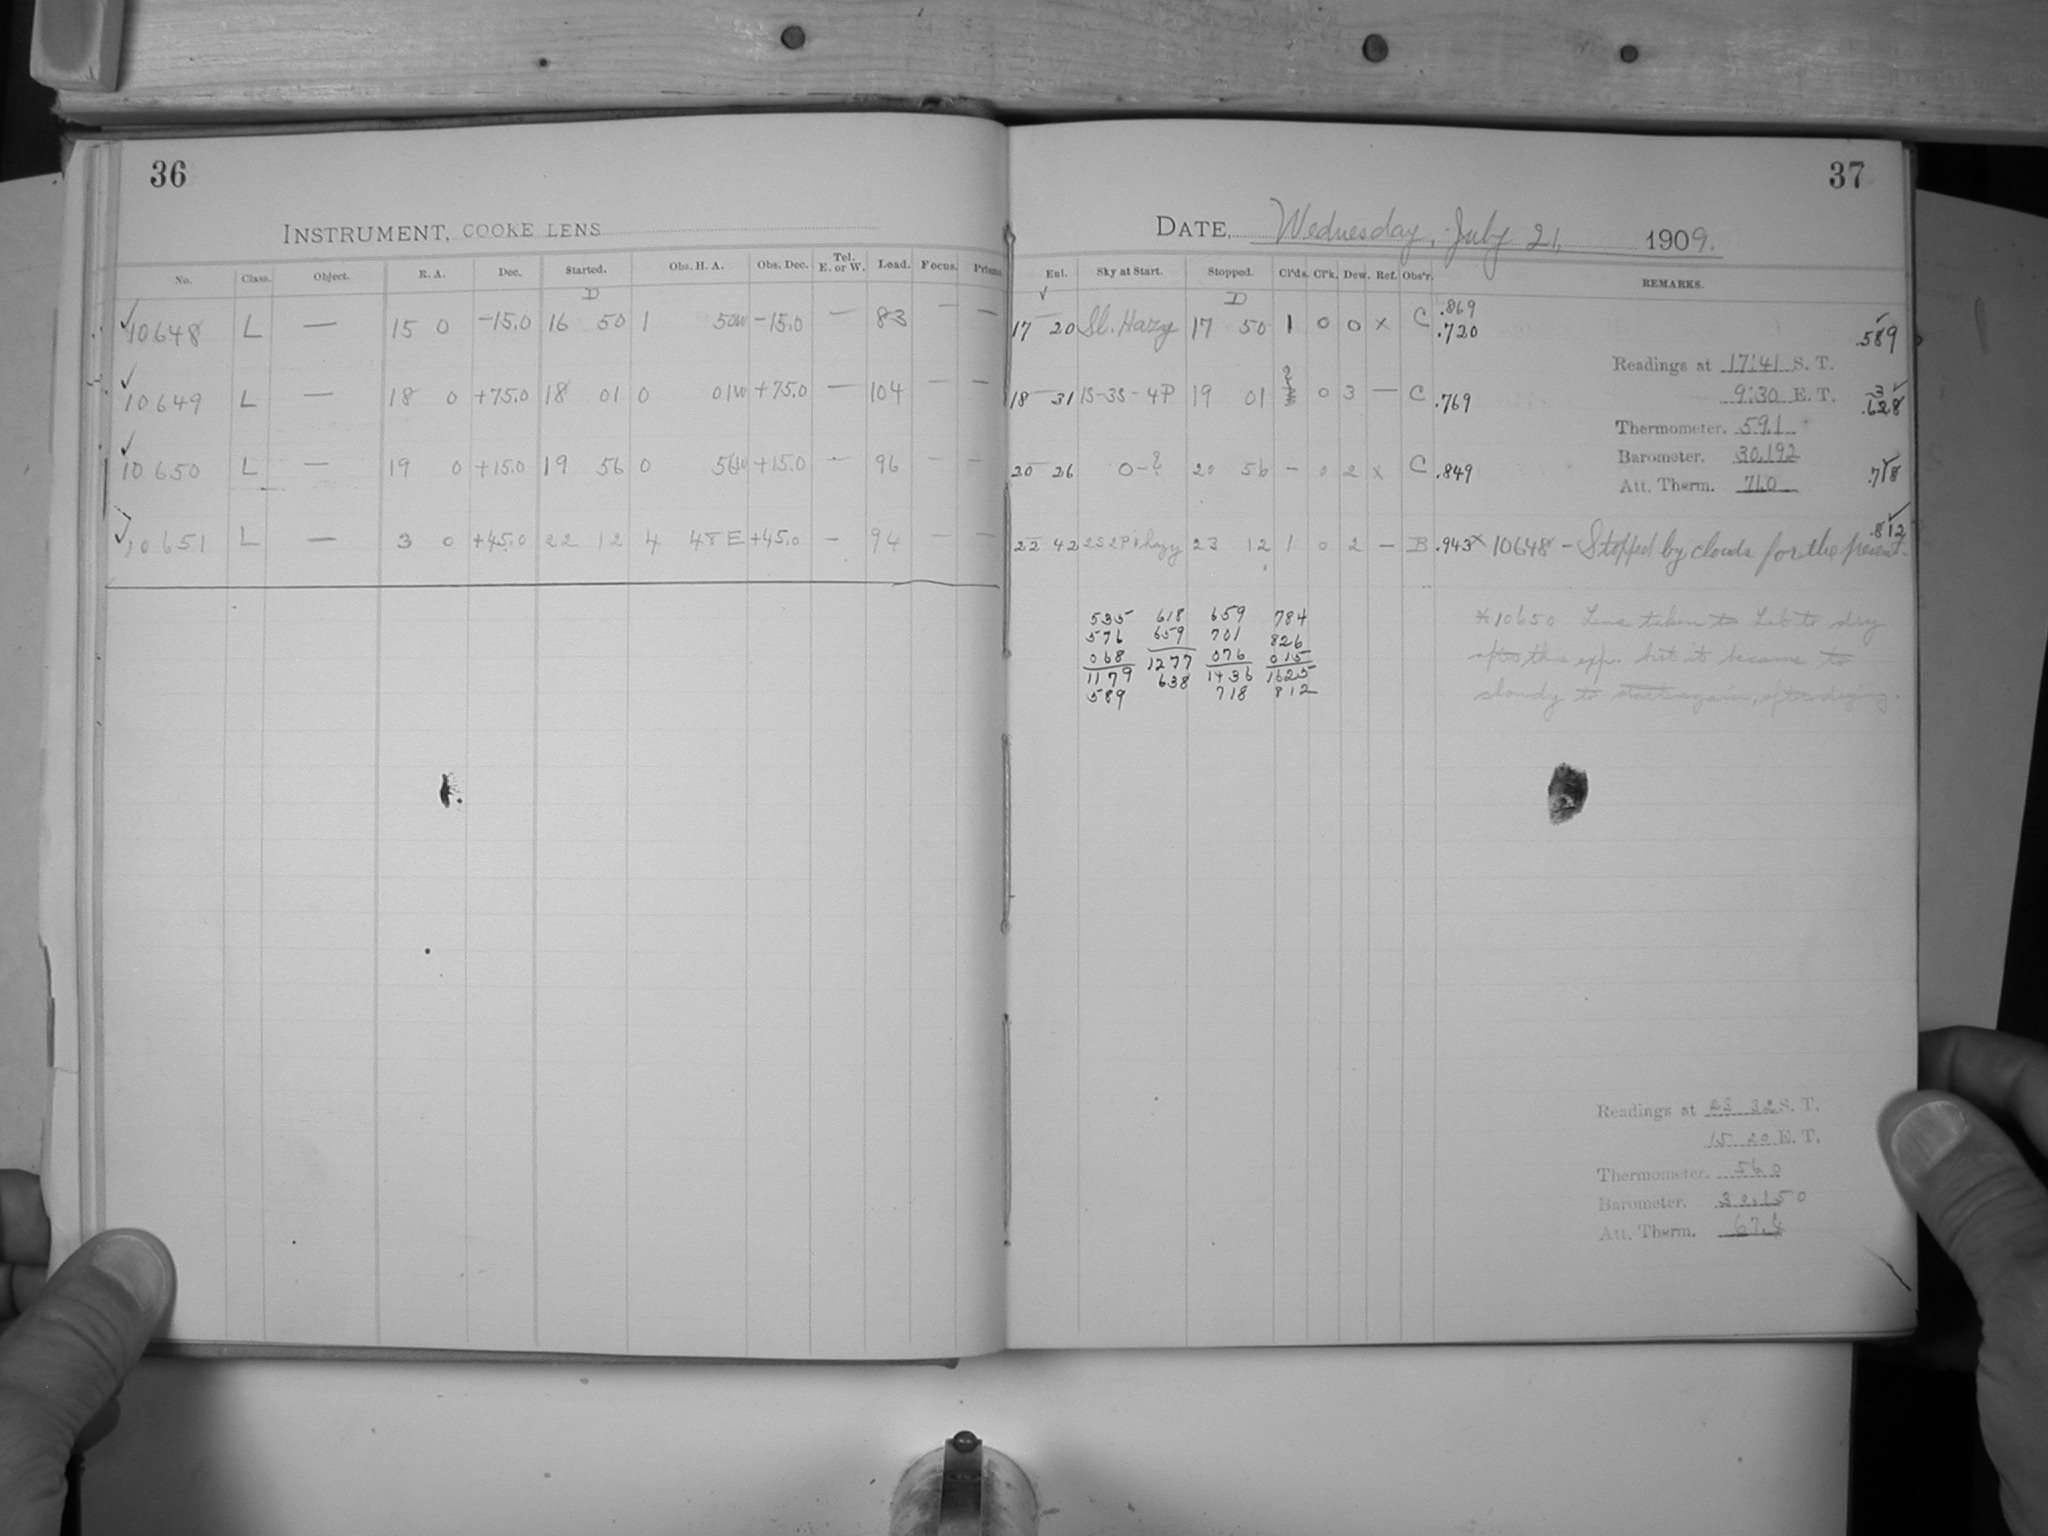 36
INSTRUMENT, COOKE LENS
No. Class. Object. R. A. Dec. Started. Obs. H. A. Obs. Dec. Tel. E. or W. Load. Focus. Prisms.
D
10648 L — 15 0 -15.0 16 50 1 50W -15.0 — 83 — —
10649 L — 18 0 +75.0 18 01 0 01W +75.0 — 104 — —
10650 L — 19 0 +15.0 19 56 0 56W +15.0 — 96 — —
10651 L — 3 0 +45.0 22 12 4 48E +45.0 — 94 — —
37
DATE, Wednesday, July 21, 1909.
Ent. Sky at Start. Stopped. Cl'ds. Cl'k. Dew. Ref. Obs'r. REMARKS.
D
17 20 Sl. Hazy 17 50 1 0 0 x C .869 .720 .589
Readings at 17:41 S. T.
9:30 E. T.
18 31 1S-3S-4P 19 01 0 3 — C .769 .628
Thermometer. 59.1
Barometer. 30.192
20 26 0-? 20 56 - 0 2 x C .849 .718
Att. Therm. 71.0
22 42 2S2P+hazy 23 12 1 0 2 — B .943 .812
x 10648 - Stopped by clouds for the present.
535 618 659 784
576 659 701 826
068 1277 076 015
1179 638 1436 1625
589 718 812
*10650 Lens taken to Lab to dry
after this exp. but it became to
cloudy to start again, after drying.
Readings at 23 32 S. T.
15 20 E. T.
Thermometer. 56.0
Barometer. 30.150
Att. Therm.